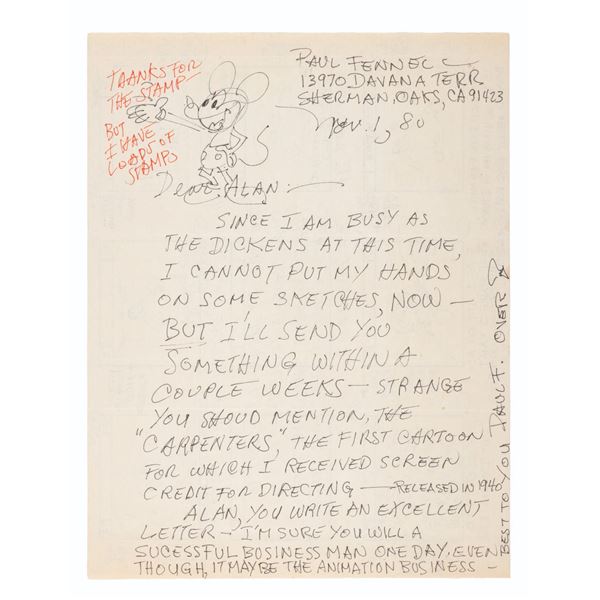 THANKS FOR
THE STAMP
BUT
I HAVE
LOADS OF
STAMPS
PAUL FENNELL
13970 DAVANA TERR
SHERMAN, OAKS, CA 91423
Nov. 1, 80
Dear ALAN:
SINCE I AM BUSY AS
THE DICKENS AT THIS TIME,
I CANNOT PUT MY HANDS
ON SOME SKETCHES, NOW —
BUT I'LL SEND YOU
SOMETHING WITHIN A
COUPLE WEEKS — STRANGE
YOU SHOUD MENTION, THE
"CARPENTERS," THE FIRST CARTOON
FOR WHICH I RECEIVED SCREEN
CREDIT FOR DIRECTING — RELEASED IN 1940
ALAN, YOU WRITE AN EXCELLENT
LETTER — I'M SURE YOU WILL A
SUCESSFUL BUSINESS MAN ONE DAY, EVEN
THOUGH, IT MAY BE THE ANIMATION BUSINESS —
BEST TO YOU PAUL F. OVER